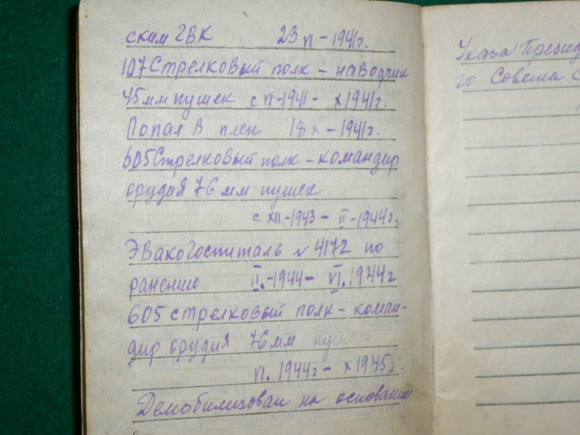 ским ГВК 23 VI - 1941г.
107 Стрелковый полк - наводчик
45 мм пушек с VI-1941 - X 1941г.
Попал в плен 18 X - 1941г.
605 Стрелковый полк - командир
орудия 76 мм пушек
с XII-1943 - II - 1944г.
Эвакогоспиталь № 4172 по
ранению II. - 1944 - VI. 1944г
605 стрелковый полк - коман-
дир орудия 76 мм пушек
VI. 1944г - X 1945г.
Демобилизован на основании
Указа Презид
го Совета С